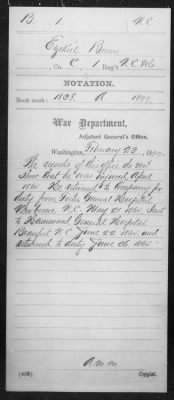 B. 1. N.C.
Ezekiel Brown
Co. C, 1 Reg't N.C. Vols
NOTATION.
Book mark: 1838. A 1897.
War Department,
Adjutant General's Office,
Washington, February 23, 1897.
The records of this office do not
show that he was injured April
1865. He returned to Company for
duty from Foster General Hospital
New Berne N.C. May 21 1865. Sent
to Hammond General Hospital
Beaufort N.C. June 22 1865 and
returned to duty June 26 1865.
Copyist.